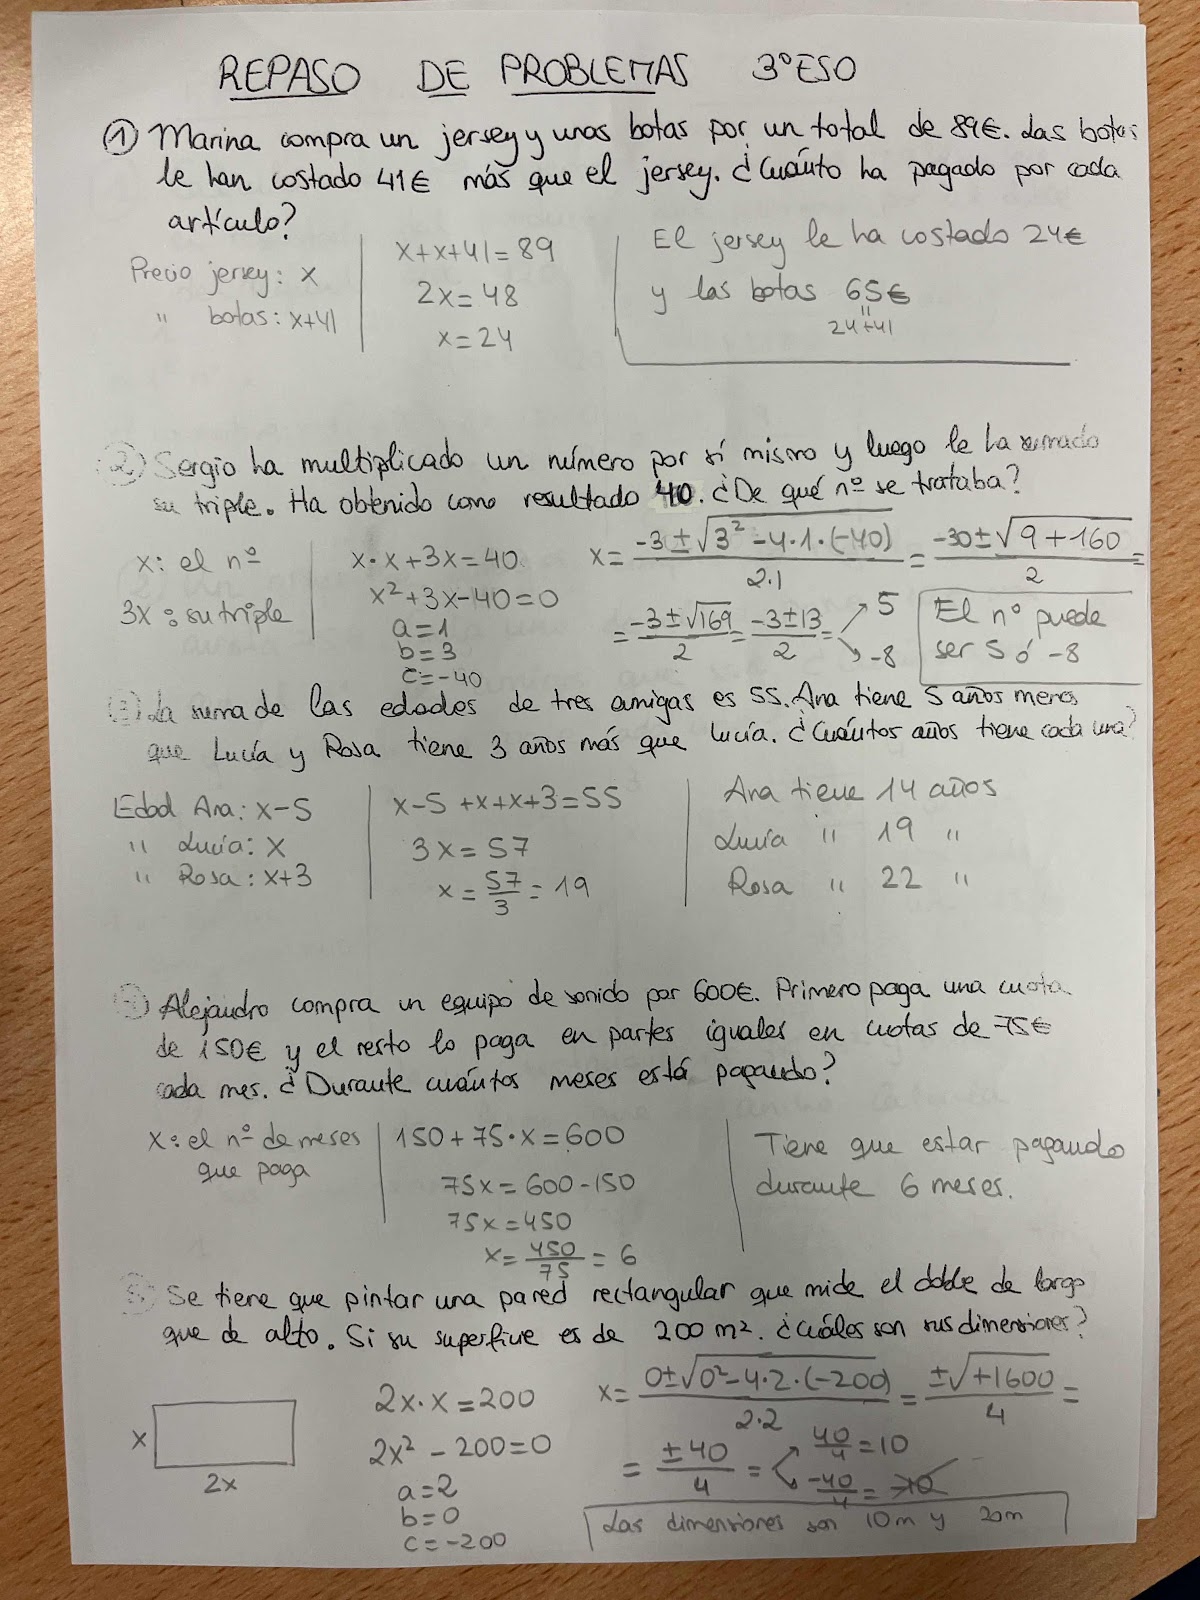 REPASO DE PROBLEMAS 3ºESO
① Marina compra un jersey y unas botas por un total de 89€. Las botas
le han costado 41€ más que el jersey. ¿Cuánto ha pagado por cada
artículo?
Precio jersey: x
" botas: x+41
x+x+41=89
2x=48
x=24
El jersey le ha costado 24€
y las botas 65€
"
24+41
② Sergio ha multiplicado un número por sí mismo y luego le ha sumado
su triple. Ha obtenido como resultado 40. ¿De qué nº se trataba?
x: el nº
3x: su triple
x·x+3x=40
x²+3x-40=0
a=1
b=3
c=-40
x= -3±√3²-4·1·(-40) / 2·1 = -30±√9+160 / 2 =
= -3±√169 / 2 = -3±13 / 2 = ↗ 5
↘ -8
El nº puede
ser 5 ó -8
③ La suma de las edades de tres amigas es 55. Ana tiene 5 años menos
que Lucía y Rosa tiene 3 años más que Lucía. ¿Cuántos años tiene cada una?
Edad Ana: x-5
" Lucía: x
" Rosa: x+3
x-5+x+x+3=55
3x=57
x= 57/3 = 19
Ana tiene 14 años
Lucía " 19 "
Rosa " 22 "
④ Alejandro compra un equipo de sonido por 600€. Primero paga una cuota
de 150€ y el resto lo paga en partes iguales en cuotas de 75€
cada mes. ¿Durante cuántos meses está pagando?
x: el nº de meses
que paga
150+75·x=600
75x=600-150
75x=450
x= 450/75 = 6
Tiene que estar pagando
durante 6 meses.
⑤ Se tiene que pintar una pared rectangular que mide el doble de largo
que de alto. Si su superficie es de 200 m². ¿Cuáles son sus dimensiones?
x
2x
2x·x=200
2x²-200=0
a=2
b=0
c=-200
x= 0±√0²-4·2·(-200) / 2·2 = ±√+1600 / 4 =
= ±40 / 4 = ↗ 40/4 = 10
↘ -40/4 = -10
Las dimensiones son 10m y 20m